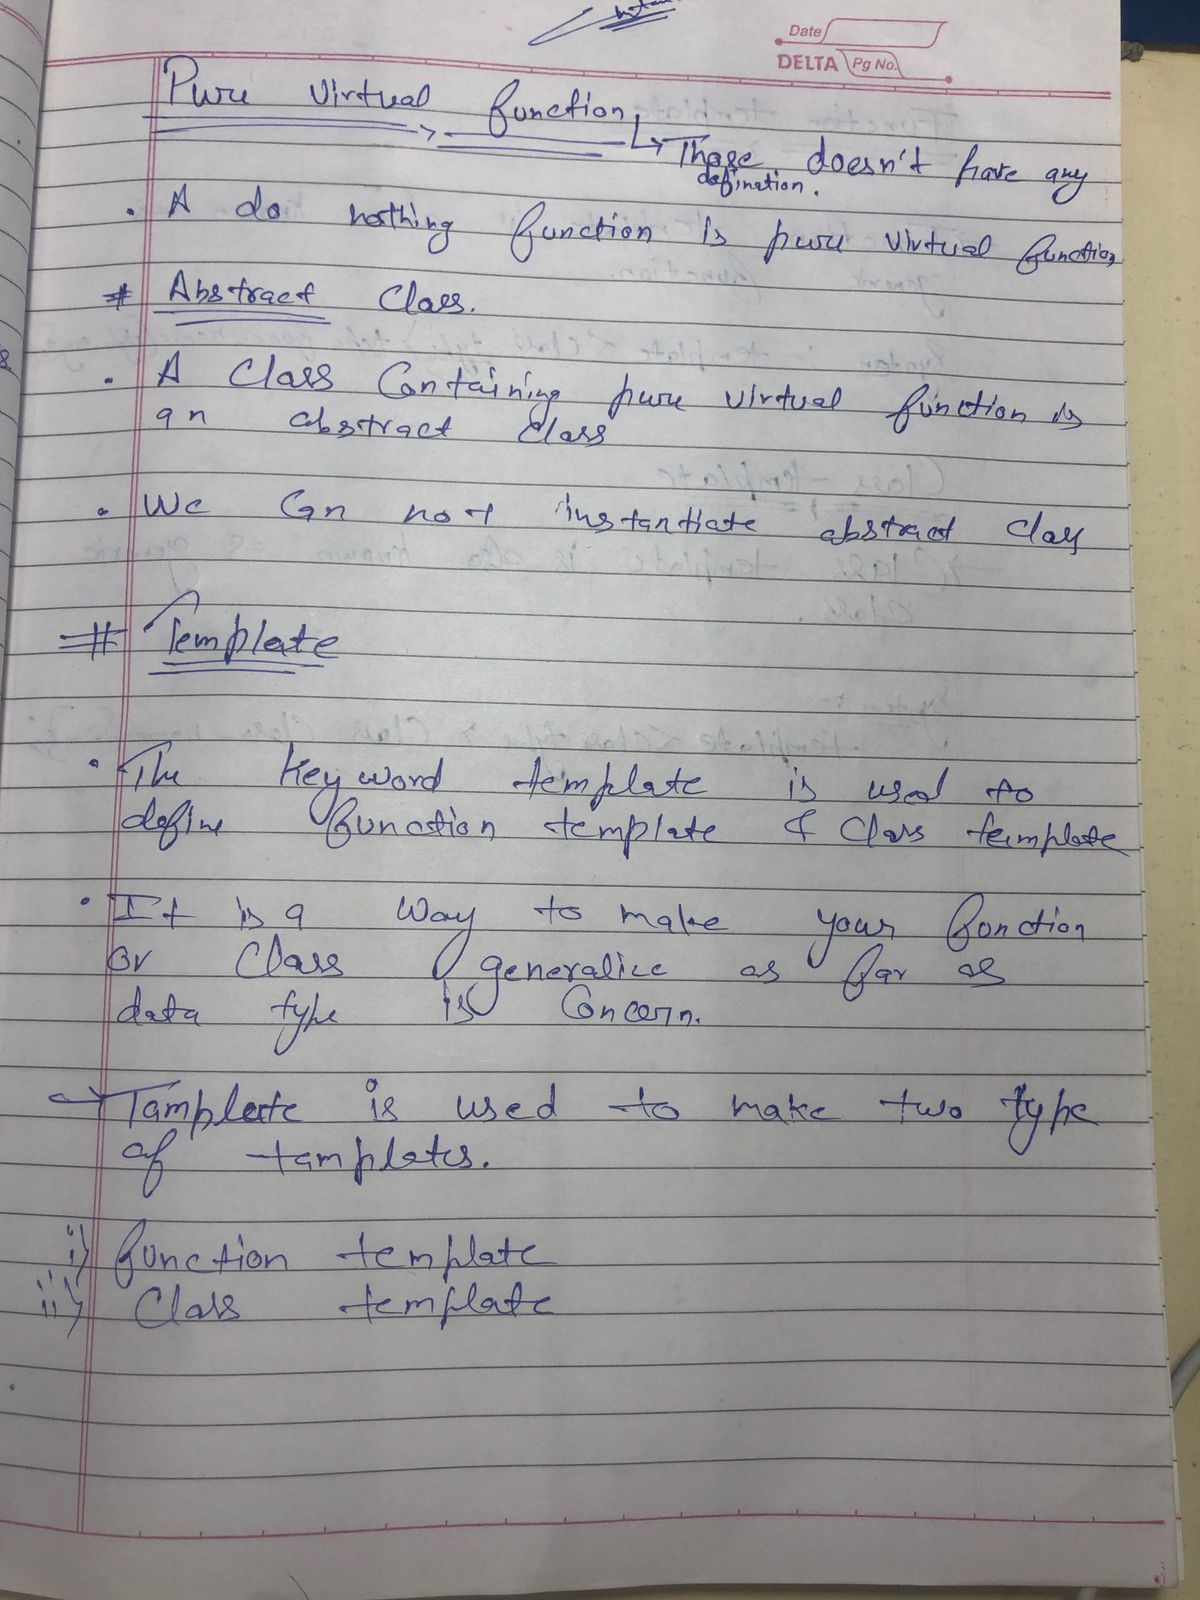 Date
DELTA Pg No.
Pure Virtual function
Those doesn't have any
defination.
. A do nothing function is pure virtual function
# Abstract Class.
. A Class Containing pure virtual function is
an abstract class
. We Can not instantiate abstract Class
# Template
. The keyword template is used to
define function template & Class template
. It is a way to make your function
or Class generalice as far as
data type is Concern.
→ Tamplate is used to make two type
of tamplates.
i) function template
ii) Class template